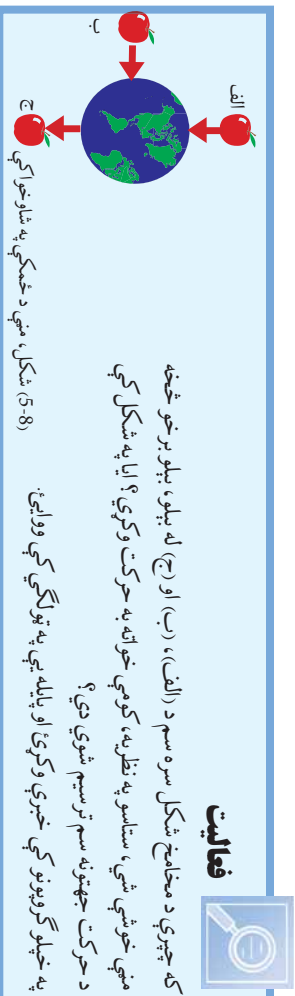 فعالیت
که چېرې د مخامخ شکل سره سم د (الف)، (ب) او (ج) له بېلو، بېلو برخو څخه
مڼې خوشې شي، ستاسو په نظريه، کومې خواته به حرکت وکړي؟ ايا په شکل کې
د حرکت جهتونه سم ترسيم شوي دي؟
په خپلو گروپونو کې خبرې وکړئ او پايله يې په ټولگي کې ووايئ.
الف
ب
ج
(5-8) شکل، مڼې د ځمکې په شاوخوا کې